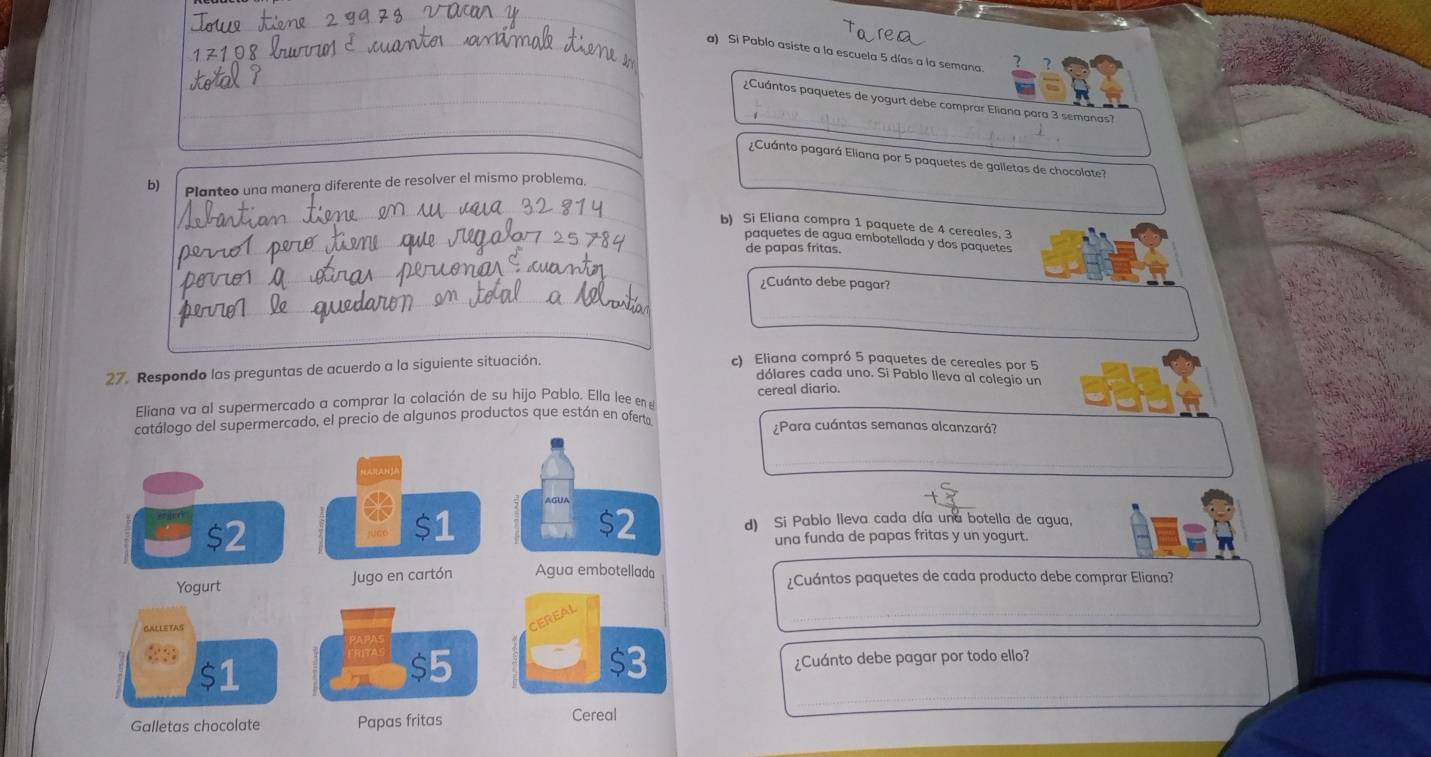 Jose tiene 29978 vacan y
17108 burros ¿ cuanton animale tiene en
total ?
b) Planteo una manera diferente de resolver el mismo problema.
Sebantian tiene en su casa 32 814
perrol pero tiene que regalar 25 784
perron a otiran personan ¿ cuanton
perron le quedaron en total a Sebantian
27. Respondo las preguntas de acuerdo a la siguiente situación.
Eliana va al supermercado a comprar la colación de su hijo Pablo. Ella lee en e
catálogo del supermercado, el precio de algunos productos que están en oferta
NARANJA
JUGO
AGUA
$2
$1
$2
Yogurt
Jugo en cartón
Agua embotellada
GALLETAS
PAPAS
FRITAS
CEREAL
$1
$5
$3
Galletas chocolate
Papas fritas
Cereal
Tarea
a) Si Pablo asiste a la escuela 5 días a la semana.
? ?
¿Cuántos paquetes de yogurt debe comprar Eliana para 3 semanas?
¿Cuánto pagará Eliana por 5 paquetes de galletas de chocolate?
b) Si Eliana compra 1 paquete de 4 cereales, 3
paquetes de agua embotellada y dos paquetes
de papas fritas.
¿Cuánto debe pagar?
c) Eliana compró 5 paquetes de cereales por 5
dólares cada uno. Si Pablo lleva al colegio un
cereal diario.
¿Para cuántas semanas alcanzará?
d) Si Pablo lleva cada día una botella de agua,
una funda de papas fritas y un yogurt.
¿Cuántos paquetes de cada producto debe comprar Eliana?
¿Cuánto debe pagar por todo ello?